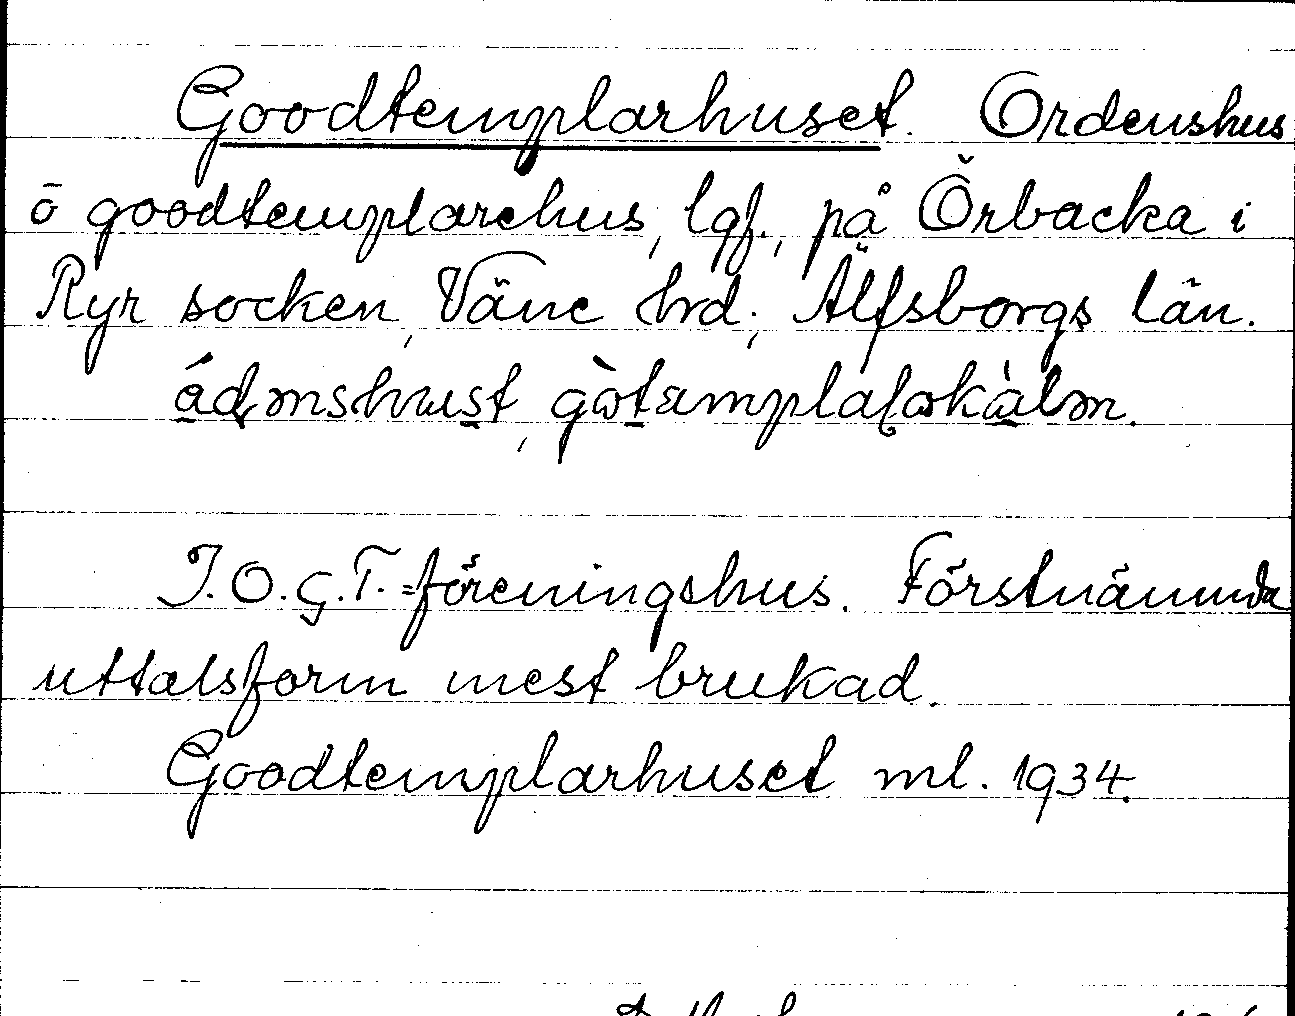 Goodtemplarhuset. Ordenshus
o goodtemplarehus, lgf., på Örbacka i
Ryr socken, Väne hrd, Älfsborgs län.
I.O.G.T.=föreningshus. Förstnämnda
uttalsform mest brukad.
Goodtemplarhuset ml. 1934.